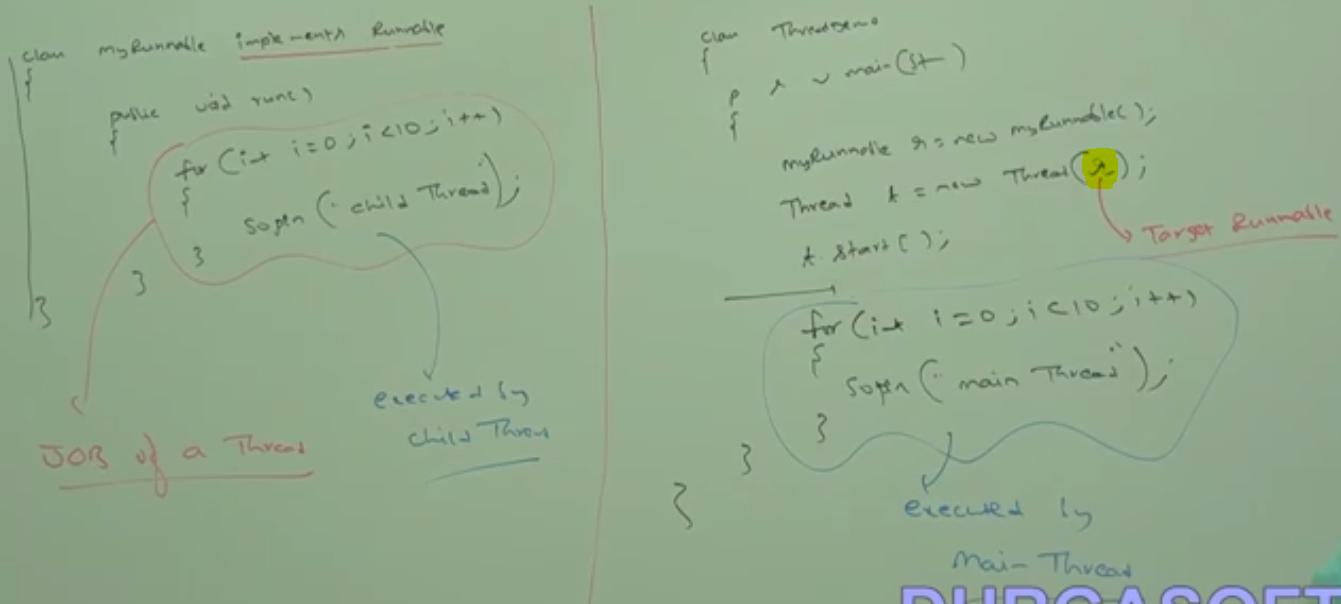 class myRunnable implements Runnable
{
public void run()
{
for (int i=0; i<10; i++)
{
sopln("child Thread");
}
}
}
JOB of a Thread
executed by
child Thread
class ThreadDemo
{
p s v main(St—)
{
myRunnable r = new myRunnable();
Thread t = new Thread(r);
t.start();
Target Runnable
for (int i=0; i<10; i++)
{
sopln("main Thread");
}
}
}
executed by
Main Thread
DURGASOFT